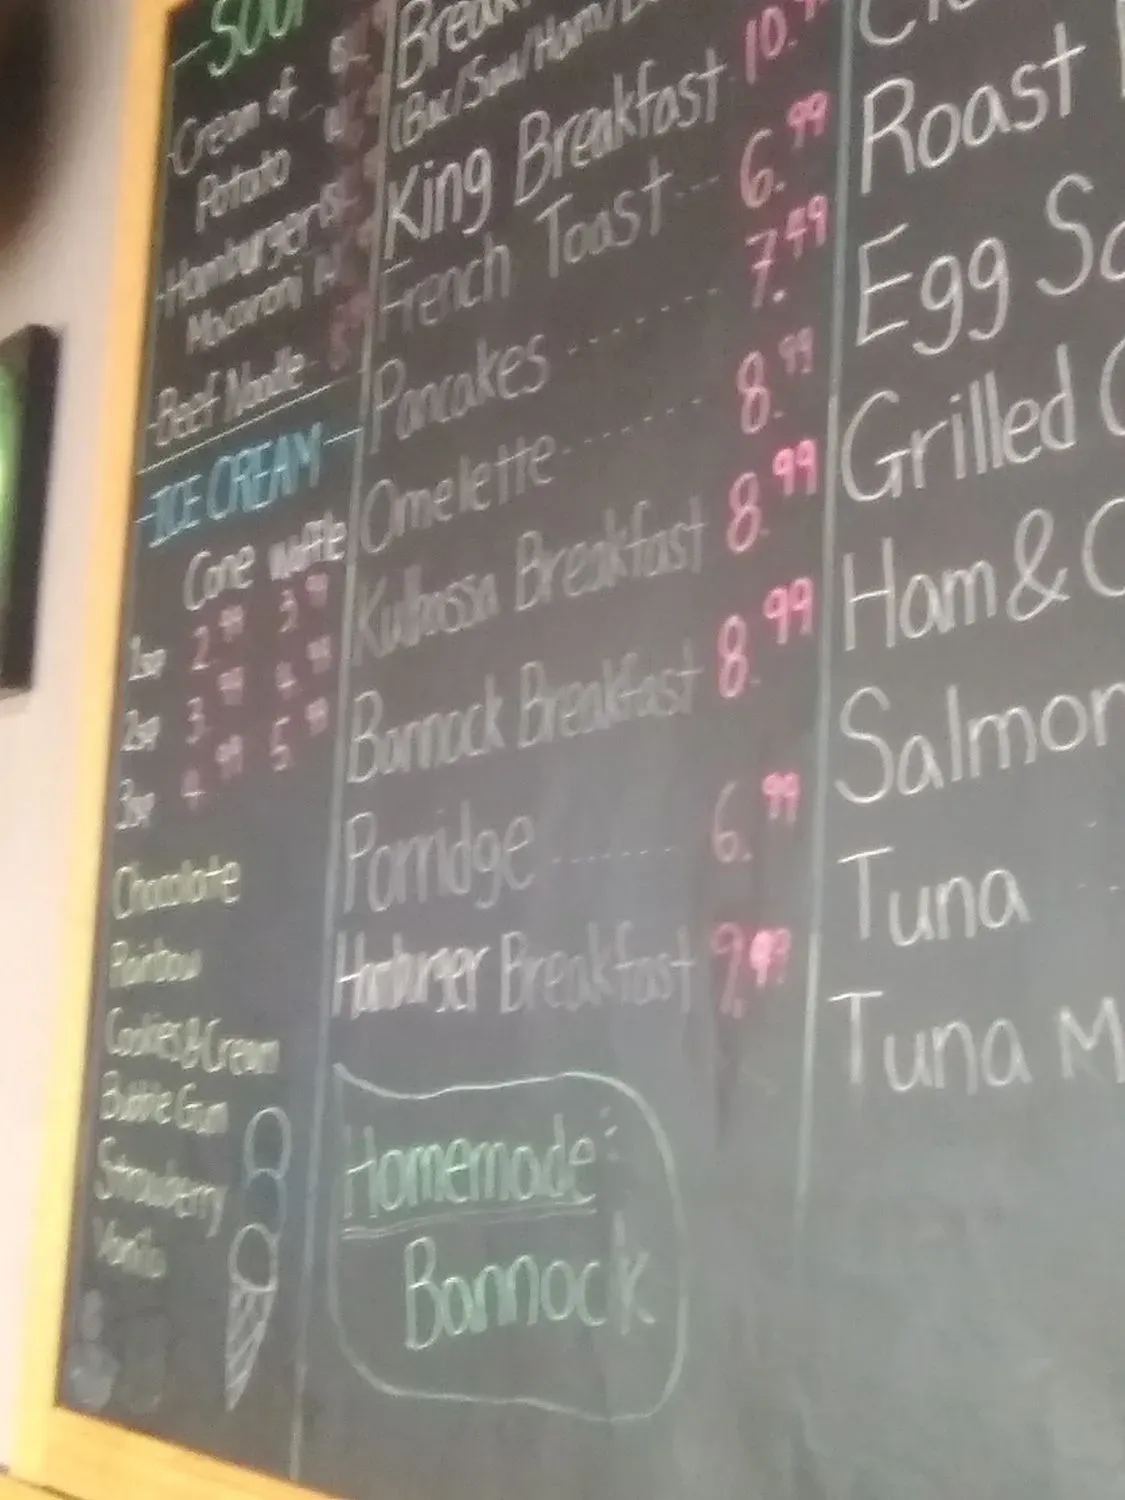 SOUP
Cream of
Potato
Hamburger
Macaroni
Beef Noodle
ICE CREAM
Cone Waffle
2.99 3.99
3.99 4.99
4.99 5.99
Chocolate
Rainbow
Cookies & Cream
Bubble Gum
Strawberry
Vanilla
(Bac/Saus/Ham/
King Breakfast 10.
French Toast 6.99
Pancakes 7.49
Omelette 8.99
Breakfast 8.99
Bannock Breakfast 8.99
Porridge 6.99
Hamburger Breakfast 9.99
Homemade:
Bannock
Roast
Egg
Grilled
Ham &
Salmon
Tuna
Tuna